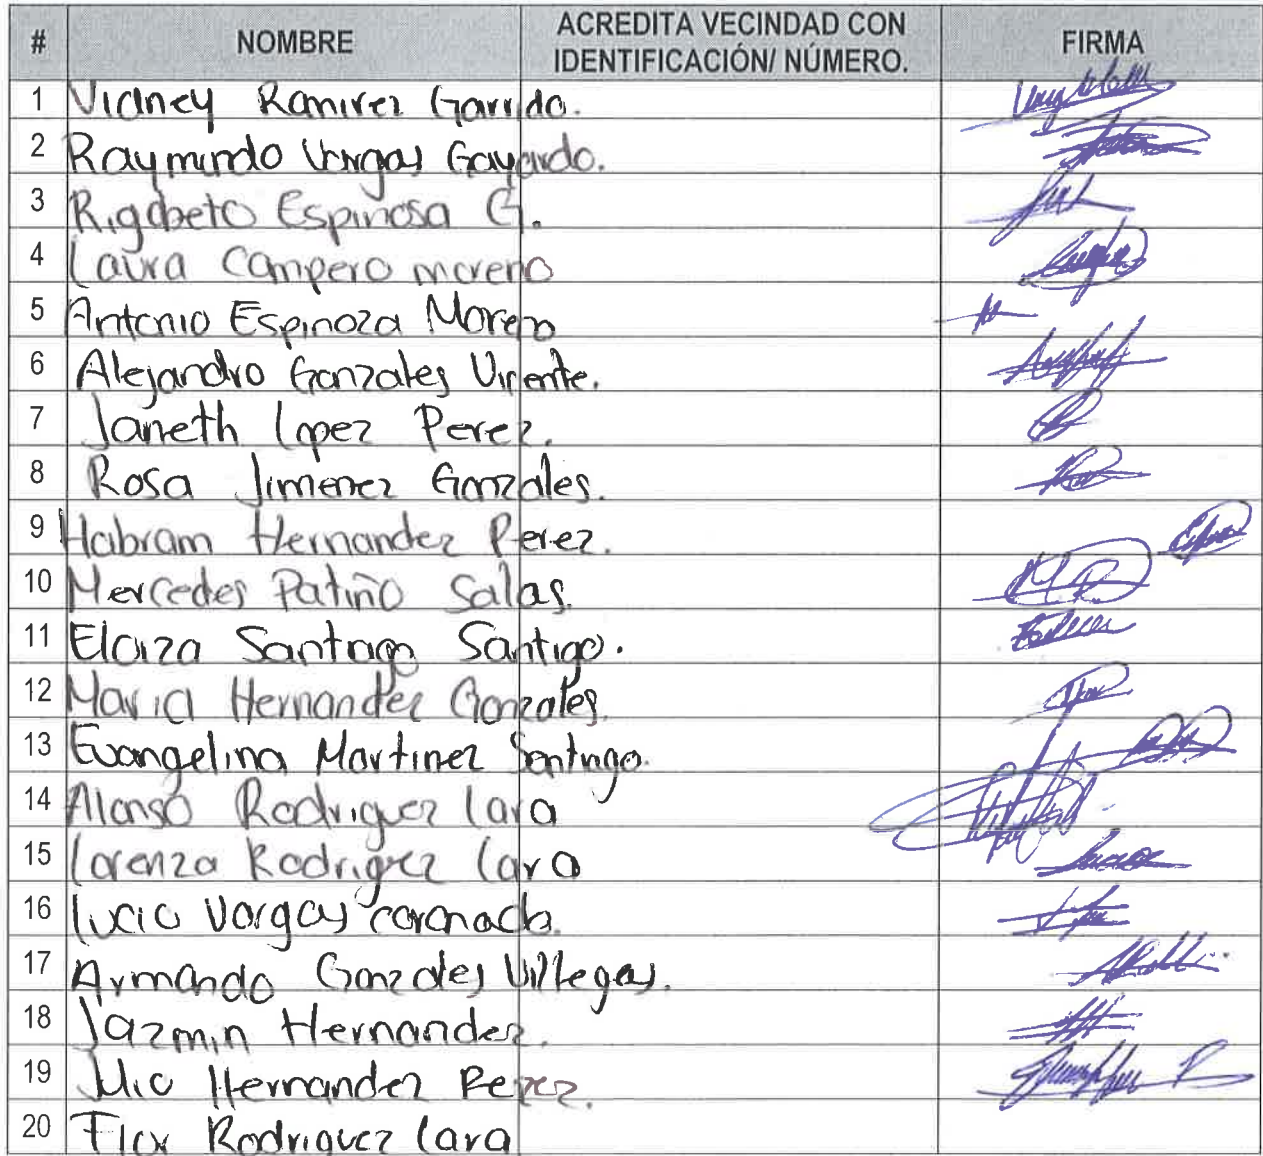 # NOMBRE ACREDITA VECINDAD CON IDENTIFICACIÓN/ NÚMERO. FIRMA
1 Vidney Ramirez Garrido.
2 Raymundo Vargas Gayardo.
3 Rigobeto Espinosa G.
4 Laura Campero moreno
5 Antonio Espinoza Moreno
6 Alejandro Gonzales Vicente.
7 Janeth Lopez Perez.
8 Rosa Jimenez Gonzales.
9 Habram Hernandez Perez.
10 Mercedes Patiño Salas.
11 Eloiza Santiago Santigo.
12 Maria Hernandez Gonzales.
13 Evangelina Martinez Santiago.
14 Alonso Rodriguez Lara
15 Lorenza Rodriguez Lara
16 Lucio Vargas coronado.
17 Armando Gonzales Villegas.
18 Jazmin Hernandez.
19 Julio Hernandez Perez.
20 Flor Rodriguez Lara